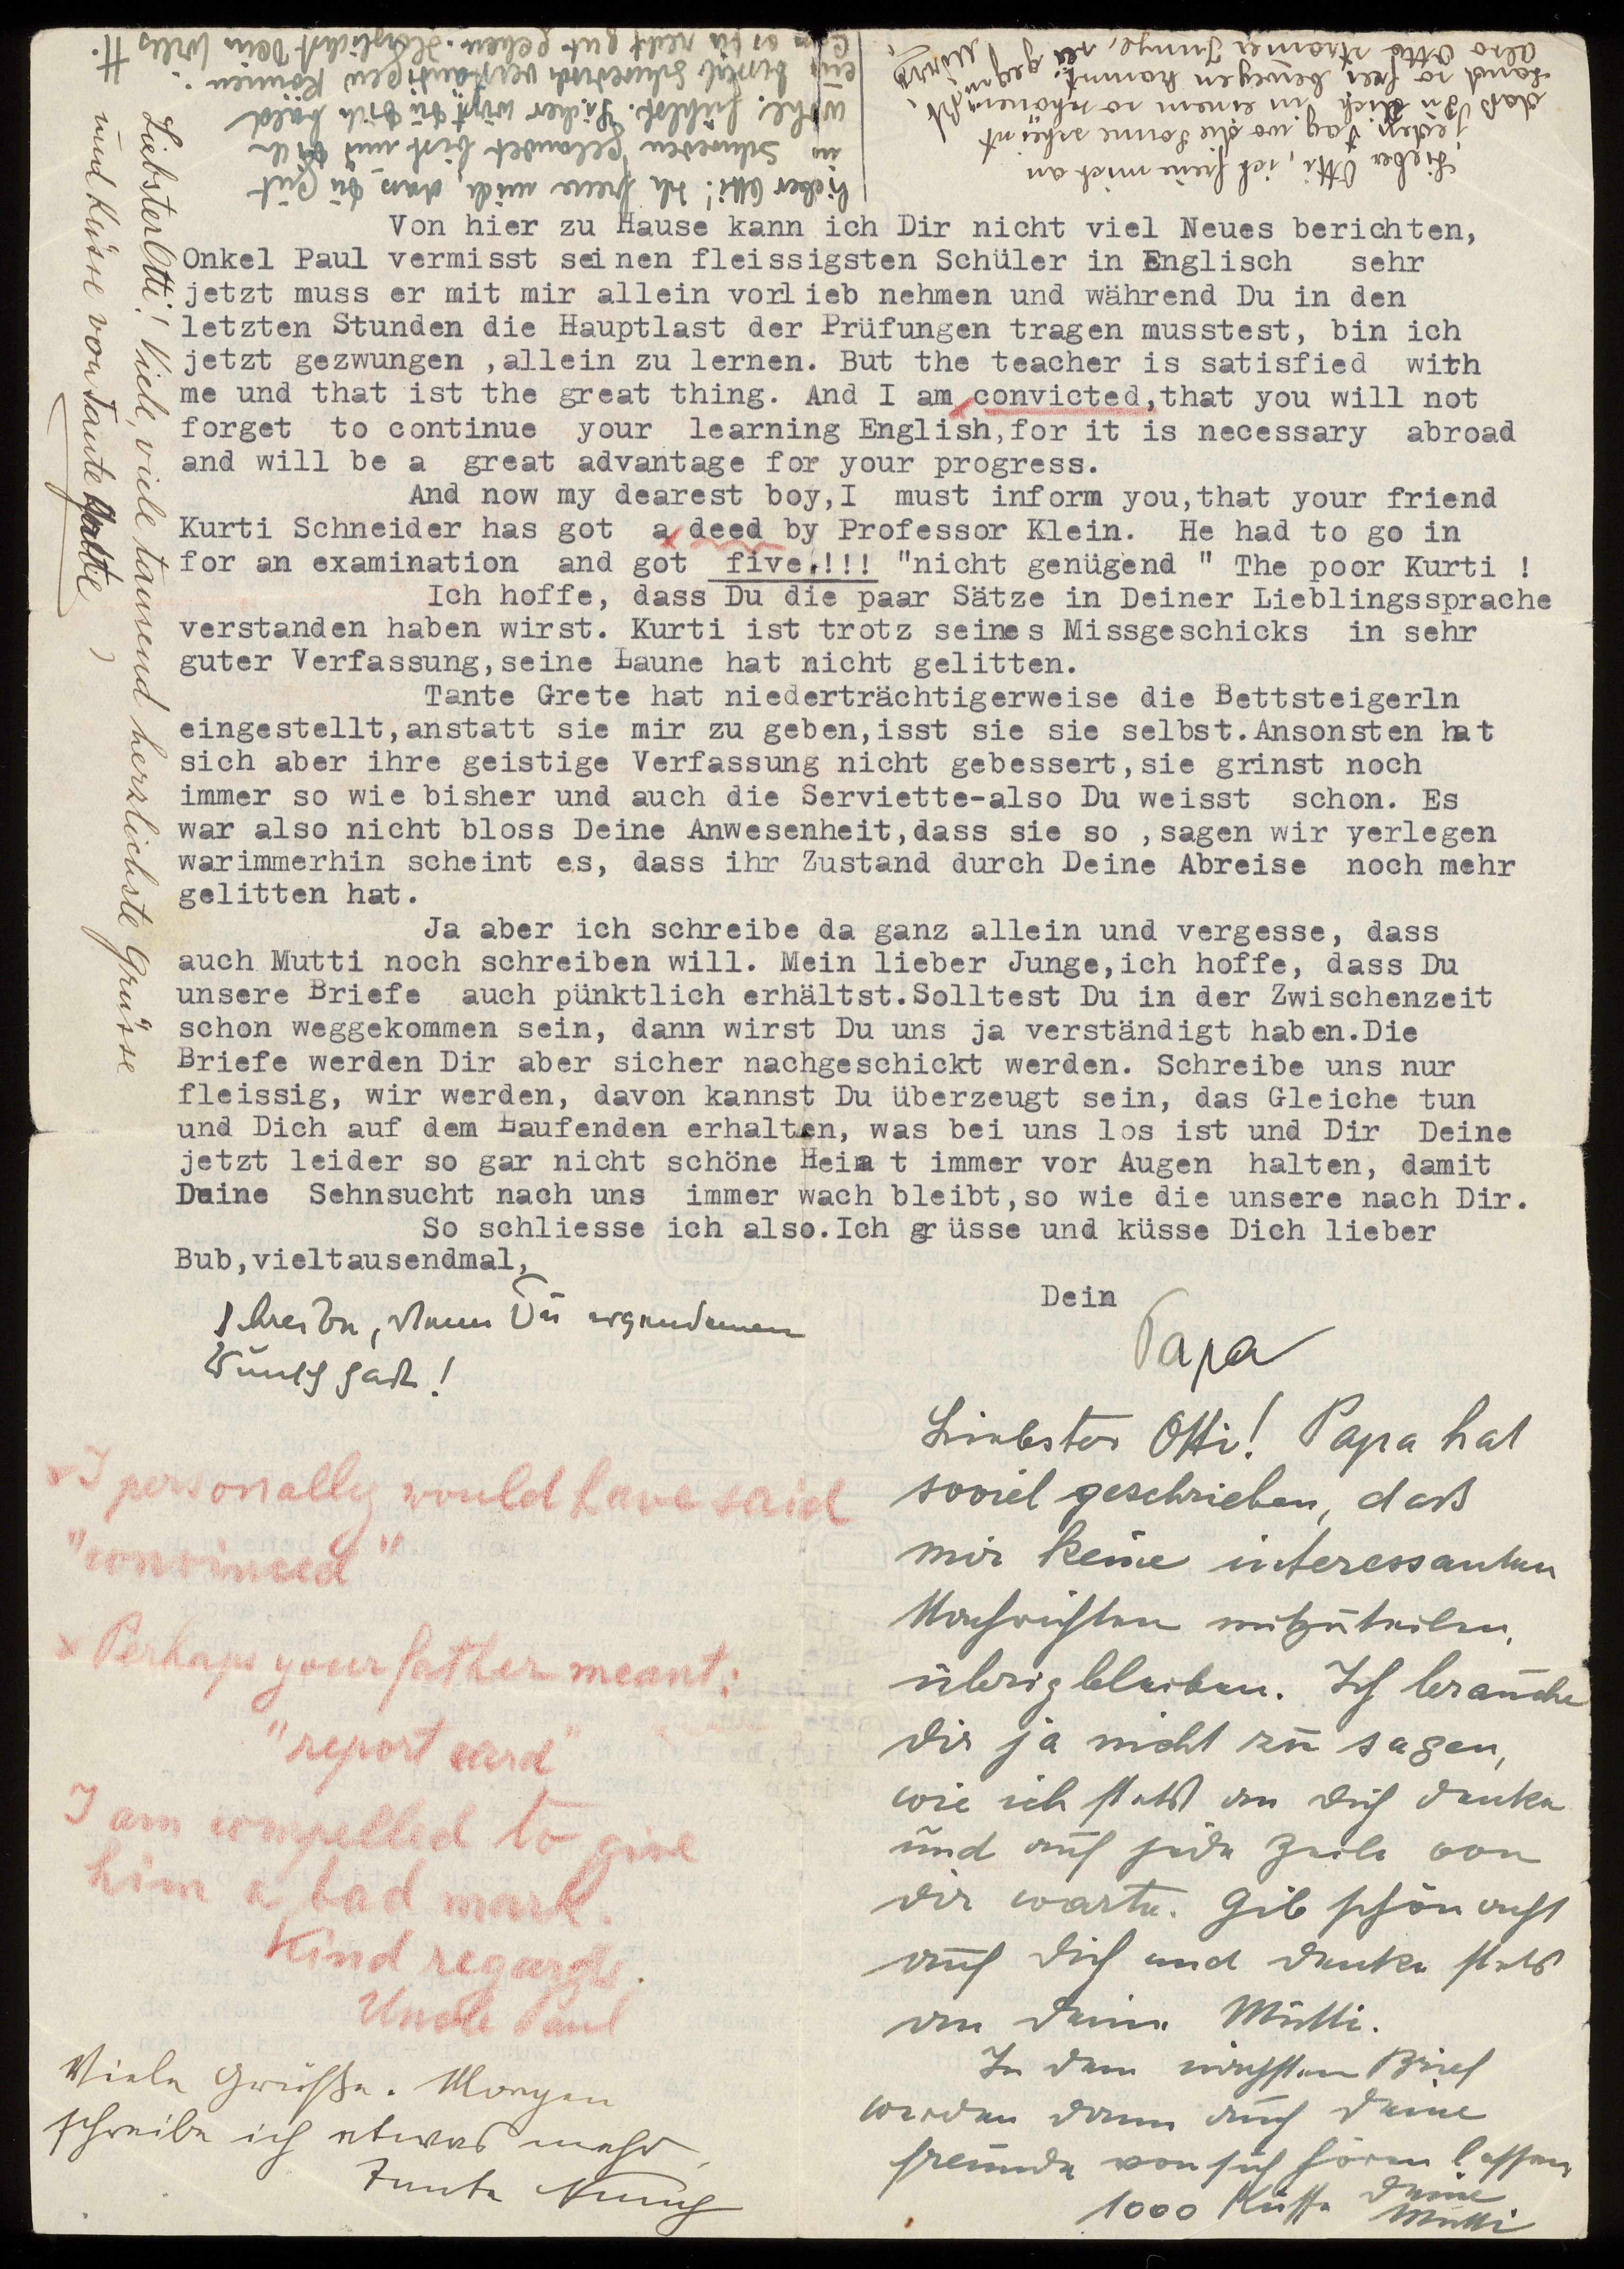 Lieber Otti! Ich freue mich, dass Du gut
in Schweden gelandet bist und Dich
wohl fühlst. Sicher wirst Du Dich bald
ein bissl schwedisch verständigen können.
recht gut gehen. Herzlichst Dein Willi H.
Lieber Otti, ich freue mich an
jeden Tag, wo die Sonne scheint
daß Du Dich in einem so schönen
Land so frei bewegen kannst.
also Otto strammer Junge, sei
Liebster Otti! Viele, viele tausend herzlichste Grüsse
und Küsse von Tante
Von hier zu Hause kann ich Dir nicht viel Neues berichten,
Onkel Paul vermisst seinen fleissigsten Schüler in Englisch sehr
jetzt muss er mit mir allein vorlieb nehmen und während Du in den
letzten Stunden die Hauptlast der Prüfungen tragen musstest, bin ich
jetzt gezwungen ,allein zu lernen. But the teacher is satisfied with
me und that ist the great thing. And I am convicted,that you will not
forget to continue your learning English,for it is necessary abroad
and will be a great advantage for your progress.
And now my dearest boy,I must inform you,that your friend
Kurti Schneider has got a deed by Professor Klein. He had to go in
for an examination and got five.!!! "nicht genügend " The poor Kurti !
Ich hoffe, dass Du die paar Sätze in Deiner Lieblingssprache
verstanden haben wirst. Kurti ist trotz seines Missgeschicks in sehr
guter Verfassung,seine Laune hat nicht gelitten.
Tante Grete hat niederträchtigerweise die Bettsteigerln
eingestellt,anstatt sie mir zu geben,isst sie sie selbst.Ansonsten hat
sich aber ihre geistige Verfassung nicht gebessert,sie grinst noch
immer so wie bisher und auch die Serviette-also Du weisst schon. Es
war also nicht bloss Deine Anwesenheit,dass sie so ,sagen wir verlegen
warimmerhin scheint es, dass ihr Zustand durch Deine Abreise noch mehr
gelitten hat.
Ja aber ich schreibe da ganz allein und vergesse, dass
auch Mutti noch schreiben will. Mein lieber Junge,ich hoffe, dass Du
unsere Briefe auch pünktlich erhältst.Solltest Du in der Zwischenzeit
schon weggekommen sein, dann wirst Du uns ja verständigt haben.Die
Briefe werden Dir aber sicher nachgeschickt werden. Schreibe uns nur
fleissig, wir werden, davon kannst Du überzeugt sein, das Gleiche tun
und Dich auf dem Laufenden erhalten, was bei uns los ist und Dir Deine
jetzt leider so gar nicht schöne Heimat immer vor Augen halten, damit
Deine Sehnsucht nach uns immer wach bleibt,so wie die unsere nach Dir.
So schliesse ich also.Ich grüsse und küsse Dich lieber
Bub,vieltausendmal,
Dein
Papa
Schreibe, wenn Du irgendeinen
Wunsch hast!
x I personally would have said
"convinced"
x Perhaps your father meant:
"report card"
I am compelled to give
him a bad mark.
Kind regards.
Uncle Paul
Viele Grüße. Morgen
schreibe ich etwas mehr,
Tante
Liebster Otti! Papa hat
soviel geschrieben, daß
mir keine interessanten
Nachrichten mitzuteilen,
übrigbleiben. Ich brauche
dir ja nicht zu sagen,
wie ich stets an dich denke
und auf jede Zeile von
dir warte. Gib schön acht
auf dich und denke stets
an deine Mutti.
In dem nächsten Brief
werden dann auch deine
Freunde von sich hören lassen
1000 Küsse deine
Mutti